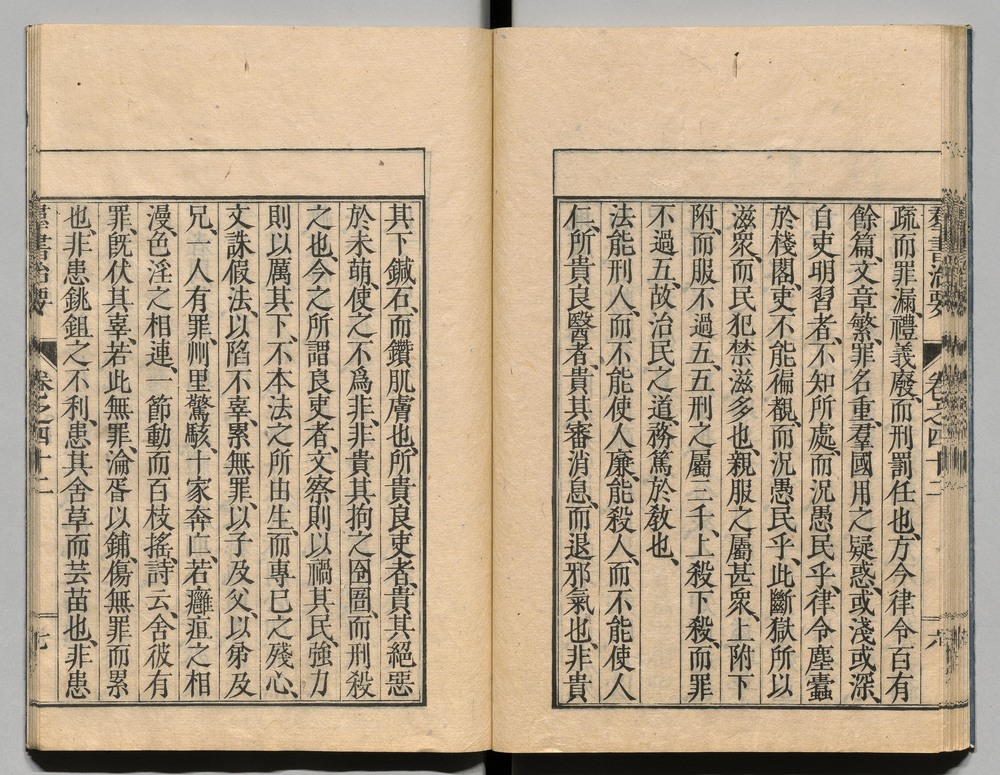 疏而罪漏、禮義廢、而刑罰任也、方今律令百有
餘篇、文章繁、罪名重、羣國用之疑惑、或淺或深、
自吏明習者、不知所處、而況愚民乎、律令塵蠹
於棧閣、吏不能徧覩、而況愚民乎、此斷獄所以
滋衆、而民犯禁滋多也、親服之屬甚衆、上附下
附、而服不過五、五刑之屬三千、上殺下殺、而罪
不過五、故治民之道、務篤於敎也、
法能刑人、而不能使人廉、能殺人、而不能使人
仁、所貴良醫者、貴其審消息、而退邪氣也、非貴
其下鍼石、而鑽肌膚也、所貴良吏者、貴其絕惡
於未萌、使之不爲非、非貴其拘之囹圄、而刑殺
之也、今之所謂良吏者、文察則以禍其民、強力
則以厲其下、不本法之所由生、而專己之殘心、
文誅假法、以陷不辜、累無罪、以子及父、以弟及
兄、一人有罪、州里驚駭、十家奔亡、若癰疽之相
漫、色淫之相連、一節動而百枝搖、詩云、舍彼有
罪、旣伏其辜、若此無罪、淪胥以鋪、傷無罪而累
也、非患銚鉏之不利、患其舍草而芸苗也、非患
羣書治要 卷之四十二 六
羣書治要 卷之四十二 七